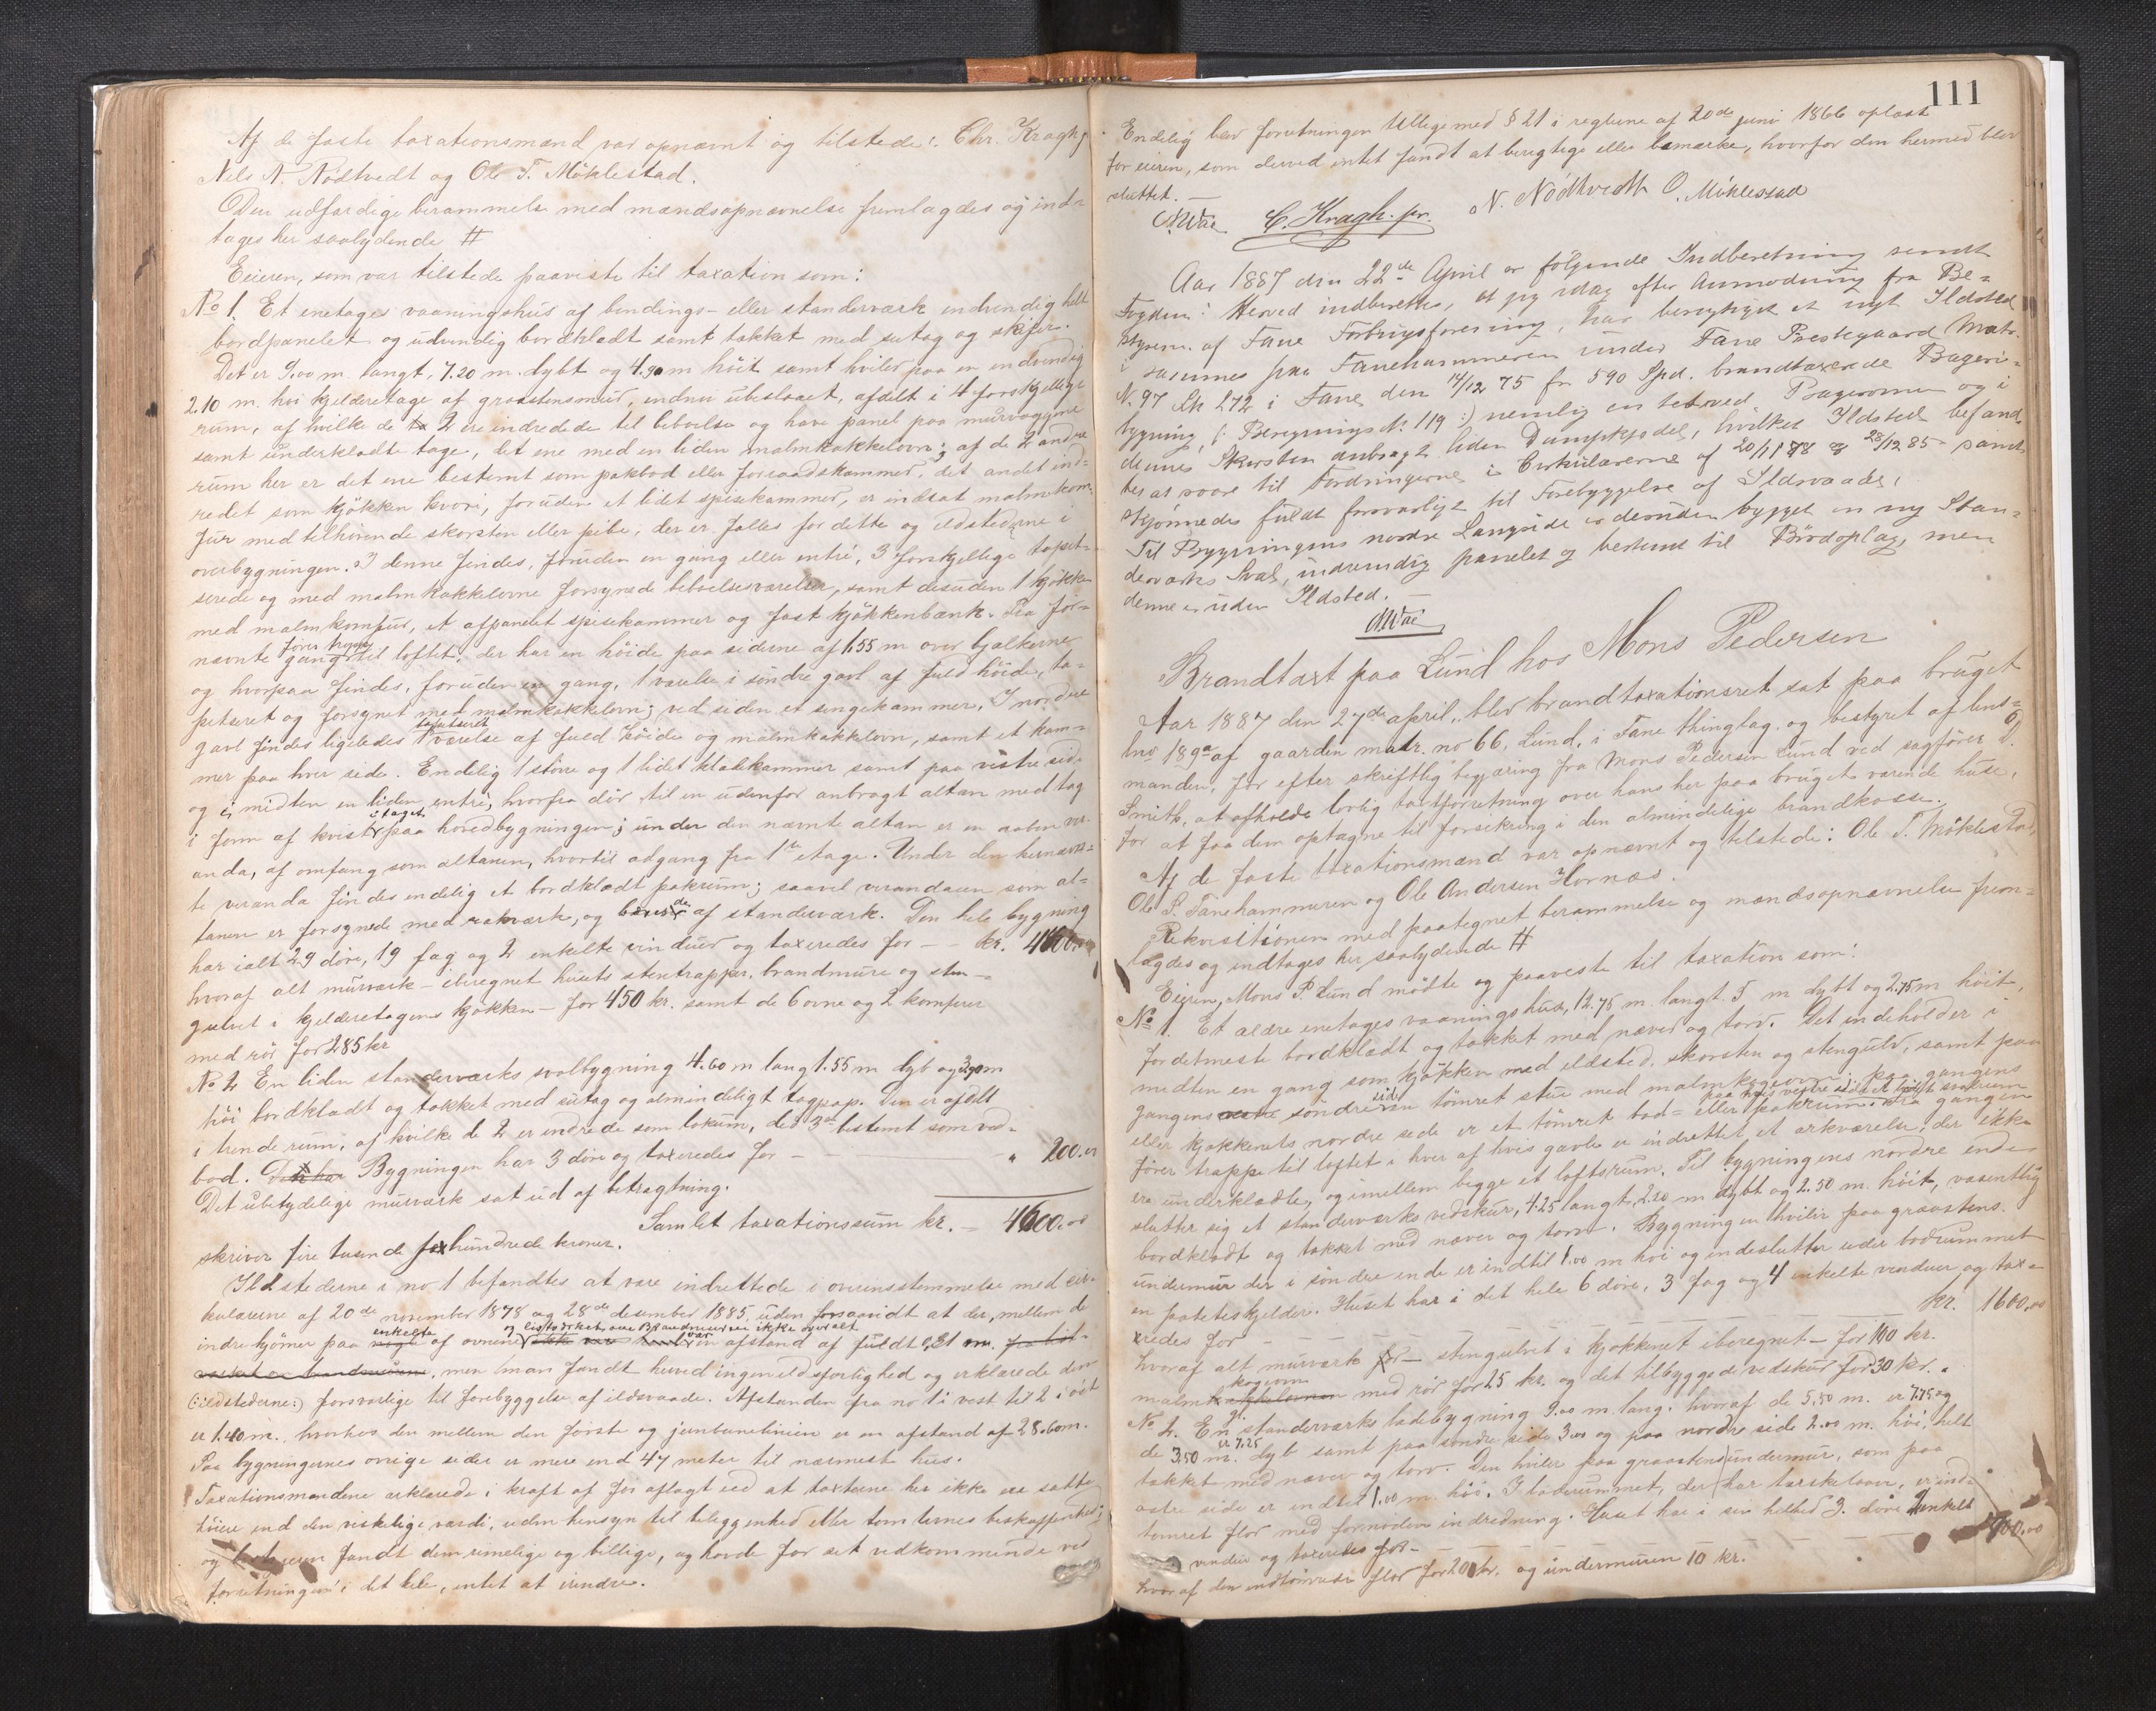 Af de faste taxationsmænd var opnævnt og tilstede: Chr. Kragh jr
Nels N. Nödtvedt og Ole T. Möklestad.
Den udfærdige berammelse med mandsopnævnelse fremlagdes og ind-
tages her saalydende #
Eieren, som var tilstede paaviste til taxation som:
No 1. Et enetages vaaningshus af bindings- eller standerværk indvendig helt
bordpanelet og udvendig bordklædt samt takket med sutag og skifer.
Det er 9.00 m. langt, 7.20 m. dybt og 4.90 m höit samt hviler paa en indvendig
2.10 m. höi kjelderetage af graastensmur, endnu ubeslaaet, afdelt i 4 forskjellige
rum, af hvilke de to 2 ere indredede til beboelse og have panel paa murvæggene
samt underklædte tage, det ene med en liden malmkakkelovn; af de 2 andre
rum her er det ene bestemt som pakbod eller forraadskammer, det andet ind-
redet som kjökken hvori, foruden et lidet spisekammer, er indsat malmkom-
fur med tilhörende skorsten eller pibe, der er fælles for dette og ildstederne i
overbygningen. I denne findes, foruden en gang eller entré, 3 forskjellige tapet-
serede og med malmkakkelovne forsynede beboelsesværelser, samt desuden 1 kjökken
med malmkomfur, et afpanelet spisekammer og fast kjökkenbænk. Fra för-
nævnte gang förer trappe til loftet, der har en höide paa siderne af 1.55 m over bjælkerne
og hvorpaa findes, foruden en gang, 1 værelse i söndre gavl af fuld höide, ta-
petseret og forsynet med malmkakkelovn; ved siden et sengekammer. I nordre
gavl findes ligeledes 1 tapetseret værelse af fuld höide og malmkakkelovn, samt et kam-
mer paa hver side. Endelig 1 större og 1 lidet klædekammer samt paa vestre side
og i midten en liden entré, hvorfra dör til en udenfor anbragt altan med tag
i form af kvist i taget paa hovedbygningen; under den nævnte altan er en aaben ver-
anda, af omfang som altanen, hvortil adgang fra 1ste etage. Under den hernævn-
te veranda findes endelig et bordklædt pakrum; saavel verandaen som al-
tanen er forsynede med rækværk, og bæres de af standerværk. Den hele bygning
har ialt 29 döre, 19 fag og 2 enkelte vinduer og taxeredes for — kr. 4400.00
hvoraf alt murværk – iberegnet husets stentrapper, brandmure og sten-
gulvet i kjelderetagens kjökken – for 450 kr. samt de 6 ovne og 2 komfurer
med rör for 285 kr
No 2 En liden standerværks svalbygning 4.60 m lang 1.55 m dyb og 3.90 m
höi bordklædt og takket med sutag og almindeligt tagpap. Den er afdelt
i trende rum, af hvilke de 2 er indrede som lokum, det 3de bestemt som ved-
bod. Den har Bygningen har 3 döre og taxeredes for — „ 200.00
Det ubetydelige murværk sat ud af betragtning.
Samlet taxationssum kr. — 4600.00
skriver fire tusende sex hundrede kroner.
Ildstederne i no 1 befandtes at være indrettede i overensstemmelse med cir-
kulærerne af 20de november 1878 og 28de desember 1885, uden forsaavidt at der, mellem de
indre hjörner paa enkelte af ovnene og listværket om Brandmuren ikke overalt var en afstand af fuldt 0,31 m.
men man fandt herved ingen ildsfarlighed og erklærede dem
(:ildstederne:) forsvarlige til forebyggelse af ildsvaade. Afstanden fra no 1 i vest til 2 i öst
er 1.40 m., hvorhos den mellem den förste og jernbanelinien er en afstand af 28.60 m.
Paa bygningernes övrige sider er mere end 47 meter til nærmest hus.
Taxationsmændene erklærede i kraft af för aflagt ed at taxterne her ikke ere satte
höiere end den virkelige værdi, uden hensyn til beliggenhed eller tomternes beskaffenhed;
og bestyreren fandt dem rimelige og billige, og havde for sit vedkommende ved
forretningen i det hele, intet at erindre.
111
Endelig blev forretningen tillige med § 21 i reglerne af 20de juni 1866 oplæst
for eieren, som derved intet fandt at berigtige eller bemærke, hvorfor den hermed blev
sluttet. —
C. Kragh. jr. N. Nödtvedt O. Möklestad
Aar 1887 den 22de April er fölgende Indberetning sendt
Fogden: Herved indberettes, at jeg idag efter Anmodning fra Be-
styreren af Fane Forbrugsforening, har besigtiget et nyt Ildsted
i sammes paa Fanehammeren under Fane Præstegaard Matr.
N. 97 Sk 272 i Fane, den 14/12 75 for 590 Spd. brandtaxerede Bageri-
bygning, (: Beregnings N. 119 :) nemlig en tætved Bagerovnen og i
dennes Skorsten anbragt liden Dampkjedel, hvilket Ildsted befand-
tes at svare til Fordringerne i Cirkulærerne af 20/11 78 og 28/12 85 samt
skjönnedes fuldt forsvarligt til Forebyggelse af Ildsvaade.
Til Bygningens nordre Langside er desuden bygget en ny Stan-
derværks Sval, indvendig panelet og bestemt til Brödoplag, men
denne er uden Ildsted. —
Brandtaxt paa Lund hos Mons Pedersen
Aar 1887 den 27de april, blev brandtaxationsret sat paa bruget
lno 189a af gaarden matr. no 66, Lund, i Fane thinglag, og bestyret af lens-
manden, for efter skriftlig begjæring fra Mons Pedersen Lund ved sagförer O.
Smith, at afholde lovlig taxtforretning over hans her paa bruget værende huse,
for at faa dem optagne til forsikring i den almindelige brandkasse.
Af de faste taxationsmænd var opnævnt og tilstede: Ole T. Möklestad,
Ole P. Fanehammeren og Ole Andersen Hornæs.
Rekvisitionen med paategnet berammelse og mandsopnævnelse frem-
lagdes og indtages her saalydende #
Eieren, Mons P. Lund mödte og paaviste til taxation som:
No 1. Et ældre enetages vaaningshus, 12.75 m. langt 5 m dybt og 2.75 m höit,
fordetmeste bordklædt og takket med næver og torv. Det indeholder i
midten en gang som kjökken med ildsted, skorsten og stengulv, samt paa
gangens söndre side en tömret stue med malmkogeovn; paa gangens
eller kjökkenets nordre side er et tömret bod- eller pakrum. Fra gangen
förer trappe til loftet i hver af hvis gavle er indrettet et arkværelse, der ikke
ere underklædte, og imellem begge et loftsrum. Til bygningens nordre ende
slutter sig et standerværks vedskur, 4.25 langt, 2.20 m dybt og 2.50 m. höit, væsentlig
bordklædt og takket med næver og torv. Bygningen hviler paa graastens
undermur der i söndre ende er indtil 1.00 m höi og indeslutter under bodrummet
en poteteskjelder. Huset har i det hele 6 döre, 3 fag og 4 enkelte vinduer og tax-
eredes for — kr. 1600.00
hvoraf alt murværk – stengulvet i kjökkenet iberegnet – for 100 kr.
malmkogeovn med rör for 25 kr. og det tilbyggede vedskur for 30 kr.
No 2. En gl. standerværks ladebygning 9.00 m. lang, hvoraf de 5.50 m. er 7.75 og
de 3.50 m. er 7.25 dyb samt paa söndre side 3.00 og paa nordre side 2.00 m. höi, helt
takket med næver og torv. Den hviler paa graastens undermur, som paa
östre side er indtil 1.00 m. höi. I laderummet, der har tærskelaave, er ind-
tömret flor med fornöden indredning. Huset har i sin helhed 3 döre 2 enkelt
vinduer og taxeredes for — 400.00
hvoraf den indtömrede flor for 200 kr. og undermuren 10 kr.